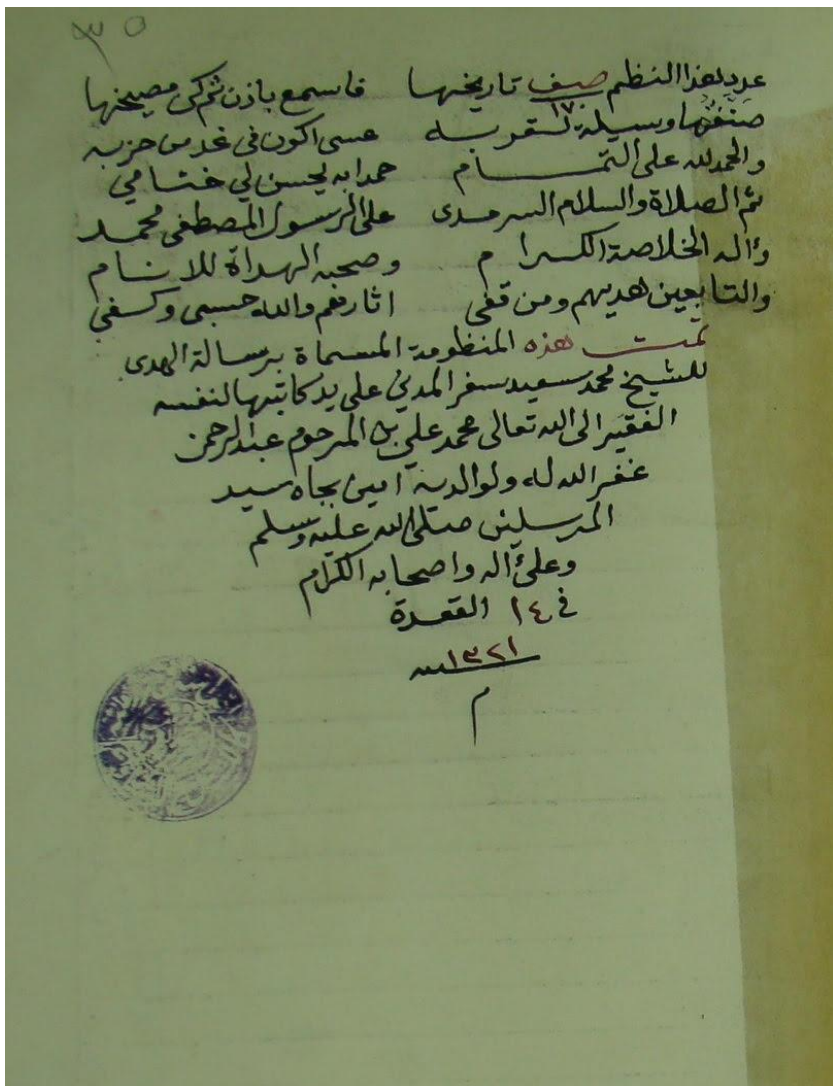 ٣٥
عدد لهذا النظم صيف تاريخها فاسمع باذن ثم كن مصيخها
١٧٠
صنفتها وسيلة لقربه عسى اكون في غد من حزبه
والحمد لله على التمام حمدا به يحسن لي ختامي
ثم الصلاة والسلام السرمدى على الرسول المصطفى محمد
وآله الخلاصة الكرام وصحبه الهداة للانام
والتابعين هديهم ومن قفى اثارهم والله حسبى وكفى
تمت هذه المنظومة المسماة برسالة الهدى
للشيخ محمد سعيد سفر المدني على يد كاتبها لنفسه
الفقير الى الله تعالى محمد علي بن المرحوم عبد الرحمن
غفر الله له ولوالديه امين بجاه سيد
المرسلين صلى الله عليه وسلم
وعلى آله واصحابه الكرام
في ١٤ القعدة
سنة ١٣٢١
م